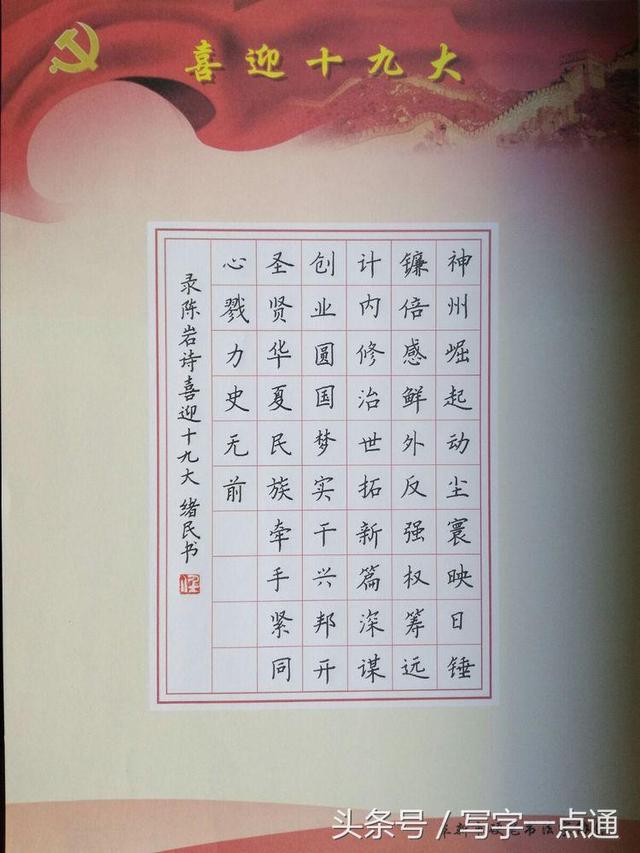 喜迎十九大
神州崛起动尘寰映日锤
镰倍感鲜外反强权筹远
计内修治世拓新篇深谋
创业圆国梦实干兴邦开
圣贤华夏民族牵手紧同
心戮力史无前
录陈岩诗喜迎十九大 绪民书
头条号/写字一点通